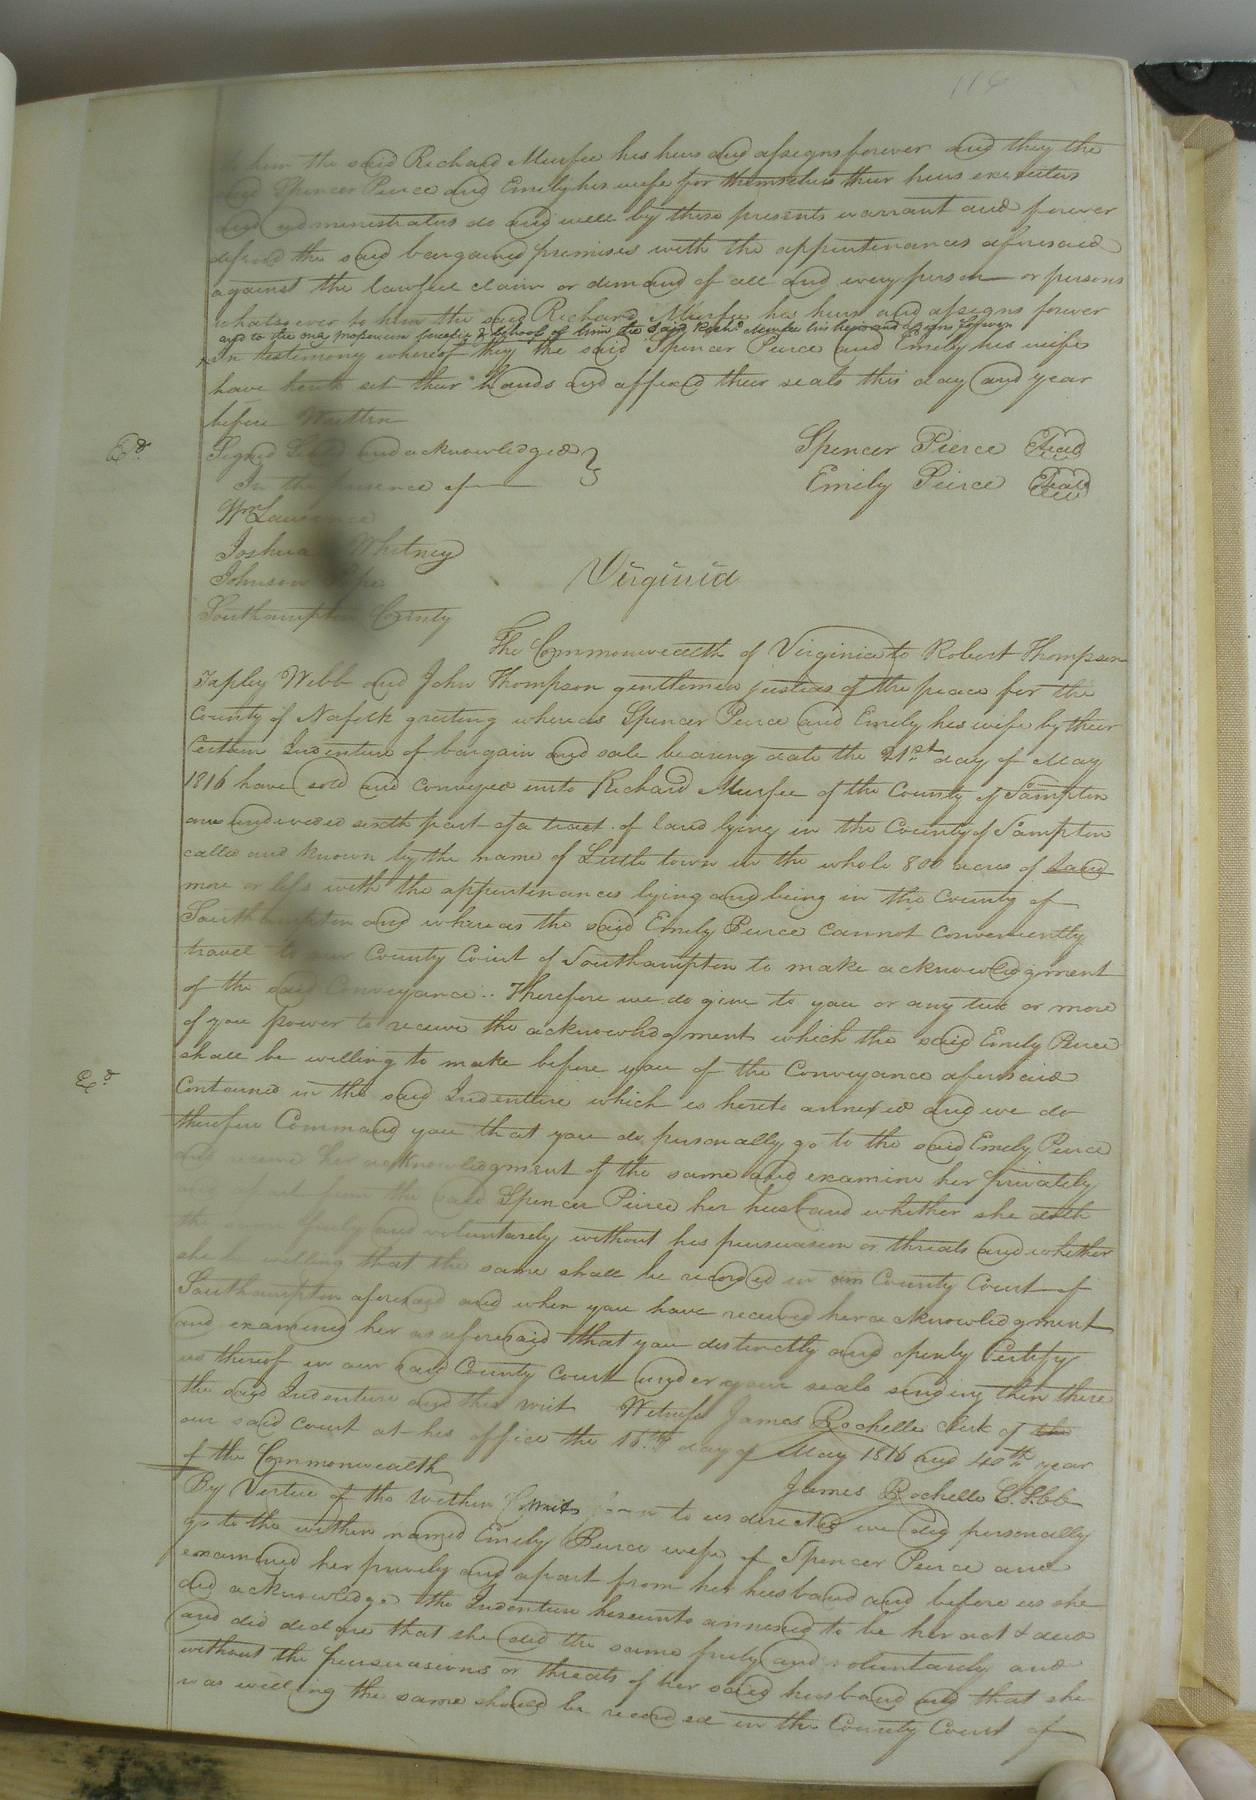 116
to him the said Richard Murfee his heirs and assigns forever and they the
said Spencer Pierce and Emily his wife for themselves their heirs executors
and administrators do and will by these presents warrant and forever
defend the said bargained premises with the appurtenances aforesaid
against the lawfull claim or demand of all and every person or persons
whatsoever to him the said Richard Murfee his heirs and assigns forever
and to the only proper use benefit & behoof of him the said Richd Murfee his heirs and assigns forever
In testimony whereof they the said Spencer Pierce and Emily his wife
have hereto set their hands and affixed their seals this day and year
before Written
Signed Sealed and acknowledged
In the presence of
Spencer Pierce Seal
Emily Peirce Seal
Ed.
Wm Laurence
Joshua Whitney
Johnson Pope
Virginia
Southampton County
The Commonwealth of Virginia to Robert Thompson
Tapley Webb and John Thompson gentlemen justices of the peace for the
County of Nafolk greeting whereas Spencer Peirce and Emily his wife by their
Certain Indenture of bargain and sale bearing date the 21st day of May
1816 have sold and conveyed unto Richard Murfee of the County of Sampton
one undivided sixth part of a tract of land lying in the County of Sampton
called and known by the name of Little town in the whole 800 acres of Land
more or less with the appurtenances lying and being in the County of
Southampton and whereas the said Emily Peirce cannot conveniently
travel to our County Court of Southampton to make acknowledgment
of the said Conveyance .. Therefore we do give to you or any two or more
of you power to receive the acknowledgment which the said Emily Peirce
shall be willing to make before you of the Conveyance aforesaid
Ed.
Contained in the said Indenture which is hereto annexed and we do
therefore Command you that you do personally go to the said Emily Peirce
and receive her acknowledgment of the same and examine her privately
and apart from the said Spencer Peirce her husband whether she doth
the freely and voluntarily without his persuasion or threats and whether
she be willing that the same shall be recorded in our County Court of
Southampton aforesaid and when you have received her acknowledgment
and examined her as aforesaid that you distinctly and openly Certify
us thereof in our said County Court under your seals sending then there
the said Indenture and this writ Witness James Rochelle Clerk of the
our said Court at his office the 15th day of May 1816 and 40th year
of the Commonwealth
James Rochelle
By Virtue of the within to us directed we did personally
go to the within named Emily Peirce wife of Spencer Peirce and
examined her privily and apart from her husband and before us she
did acknowledge the Indenture hereunto annexed to be her act & deed
and did declare that she did the same freely and voluntarily and
without the persuasions or threats of her said husband and that she
was willing the same should be recorded in the County Court of